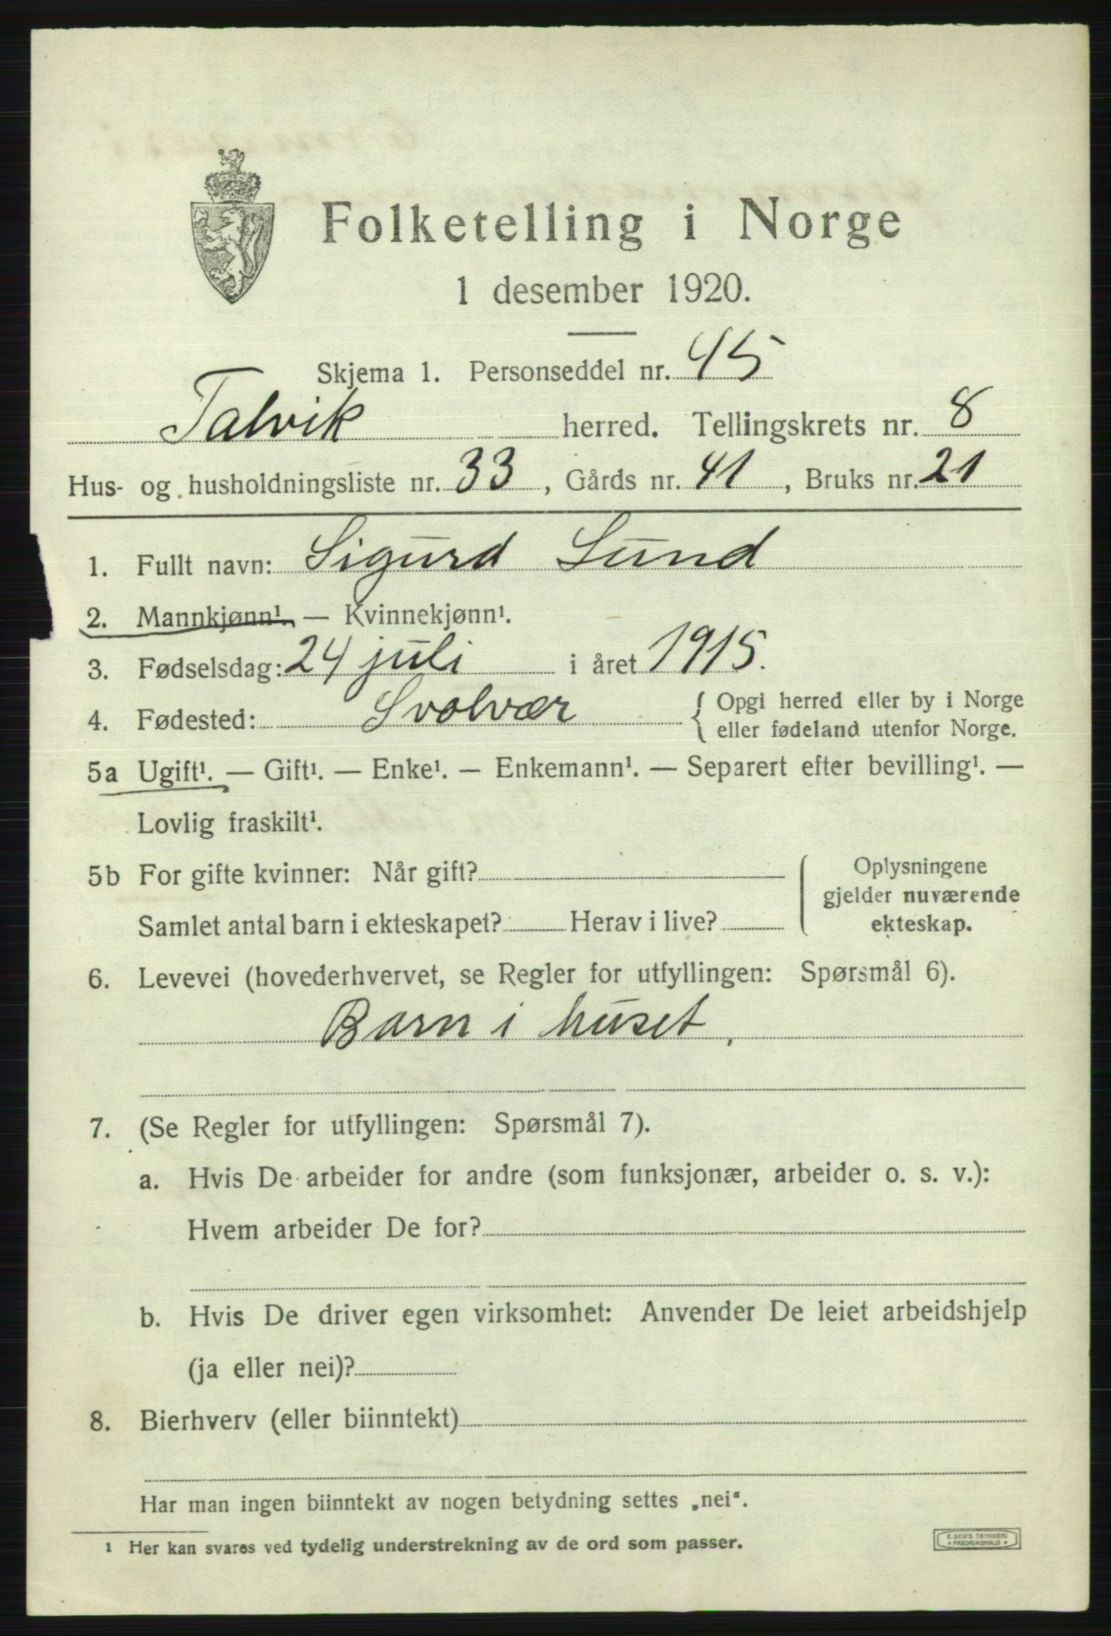 Folketelling i Norge
1 desember 1920.
Skjema 1. Personseddel nr. 45
Talvik herred. Tellingskrets nr. 8
Hus- og husholdningsliste nr. 33, Gårds nr. 41, Bruks nr. 21
1. Fullt navn: Sigurd Lund
2. Mannkjønn¹. — Kvinnekjønn¹.
3. Fødselsdag: 24 juli i året 1915.
4. Fødested: Svolvær { Opgi herred eller by i Norge
eller fødeland utenfor Norge.
5a Ugift¹. — Gift¹. — Enke¹. — Enkemann¹. — Separert efter bevilling¹. —
Lovlig fraskilt¹.
5b For gifte kvinner: Når gift? ( Oplysningene
gjelder nuværende
Samlet antal barn i ekteskapet? Herav i live? ekteskap.
6. Levevei (hovederhvervet, se Regler for utfyllingen: Spørsmål 6).
Barn i huset,
7. (Se Regler for utfyllingen: Spørsmål 7).
a. Hvis De arbeider for andre (som funksjonær, arbeider o. s. v.):
Hvem arbeider De for?
b. Hvis De driver egen virksomhet: Anvender De leiet arbeidshjelp
(ja eller nei)?
8. Bierhverv (eller biinntekt)
Har man ingen biinntekt av nogen betydning settes „nei“.
1 Her kan svares ved tydelig understrekning av de ord som passer.
E. SEMS TRYKKERI
FREDRIKSHALD